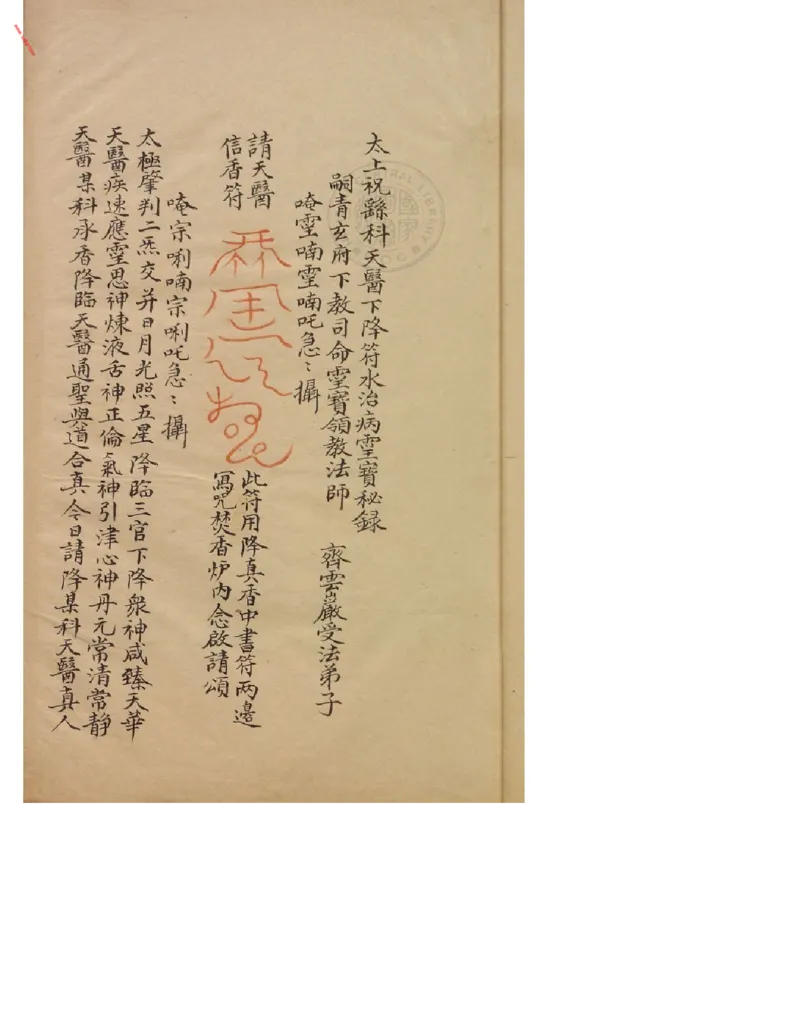 太上祝繇科天醫下降符水治病霊寶秘録
嗣青玄府下教司命霊寶領教法師 齊雲巖受法弟子
唵霊喃霊喃吒急〻攝
請天醫
信香符
此符用降真香中書符两邊
寫咒焚香炉内念啟請頌
唵宗唎喃宗唎吒急〻攝
太極肇判二炁交并日月光照五星降臨三官下降衆神咸臻天華
天醫疾速應霊思神煉液舌神正倫氣神引津心神丹元常清常静
天醫某科承香降臨天醫通聖與道合真今日請降某科天醫真人